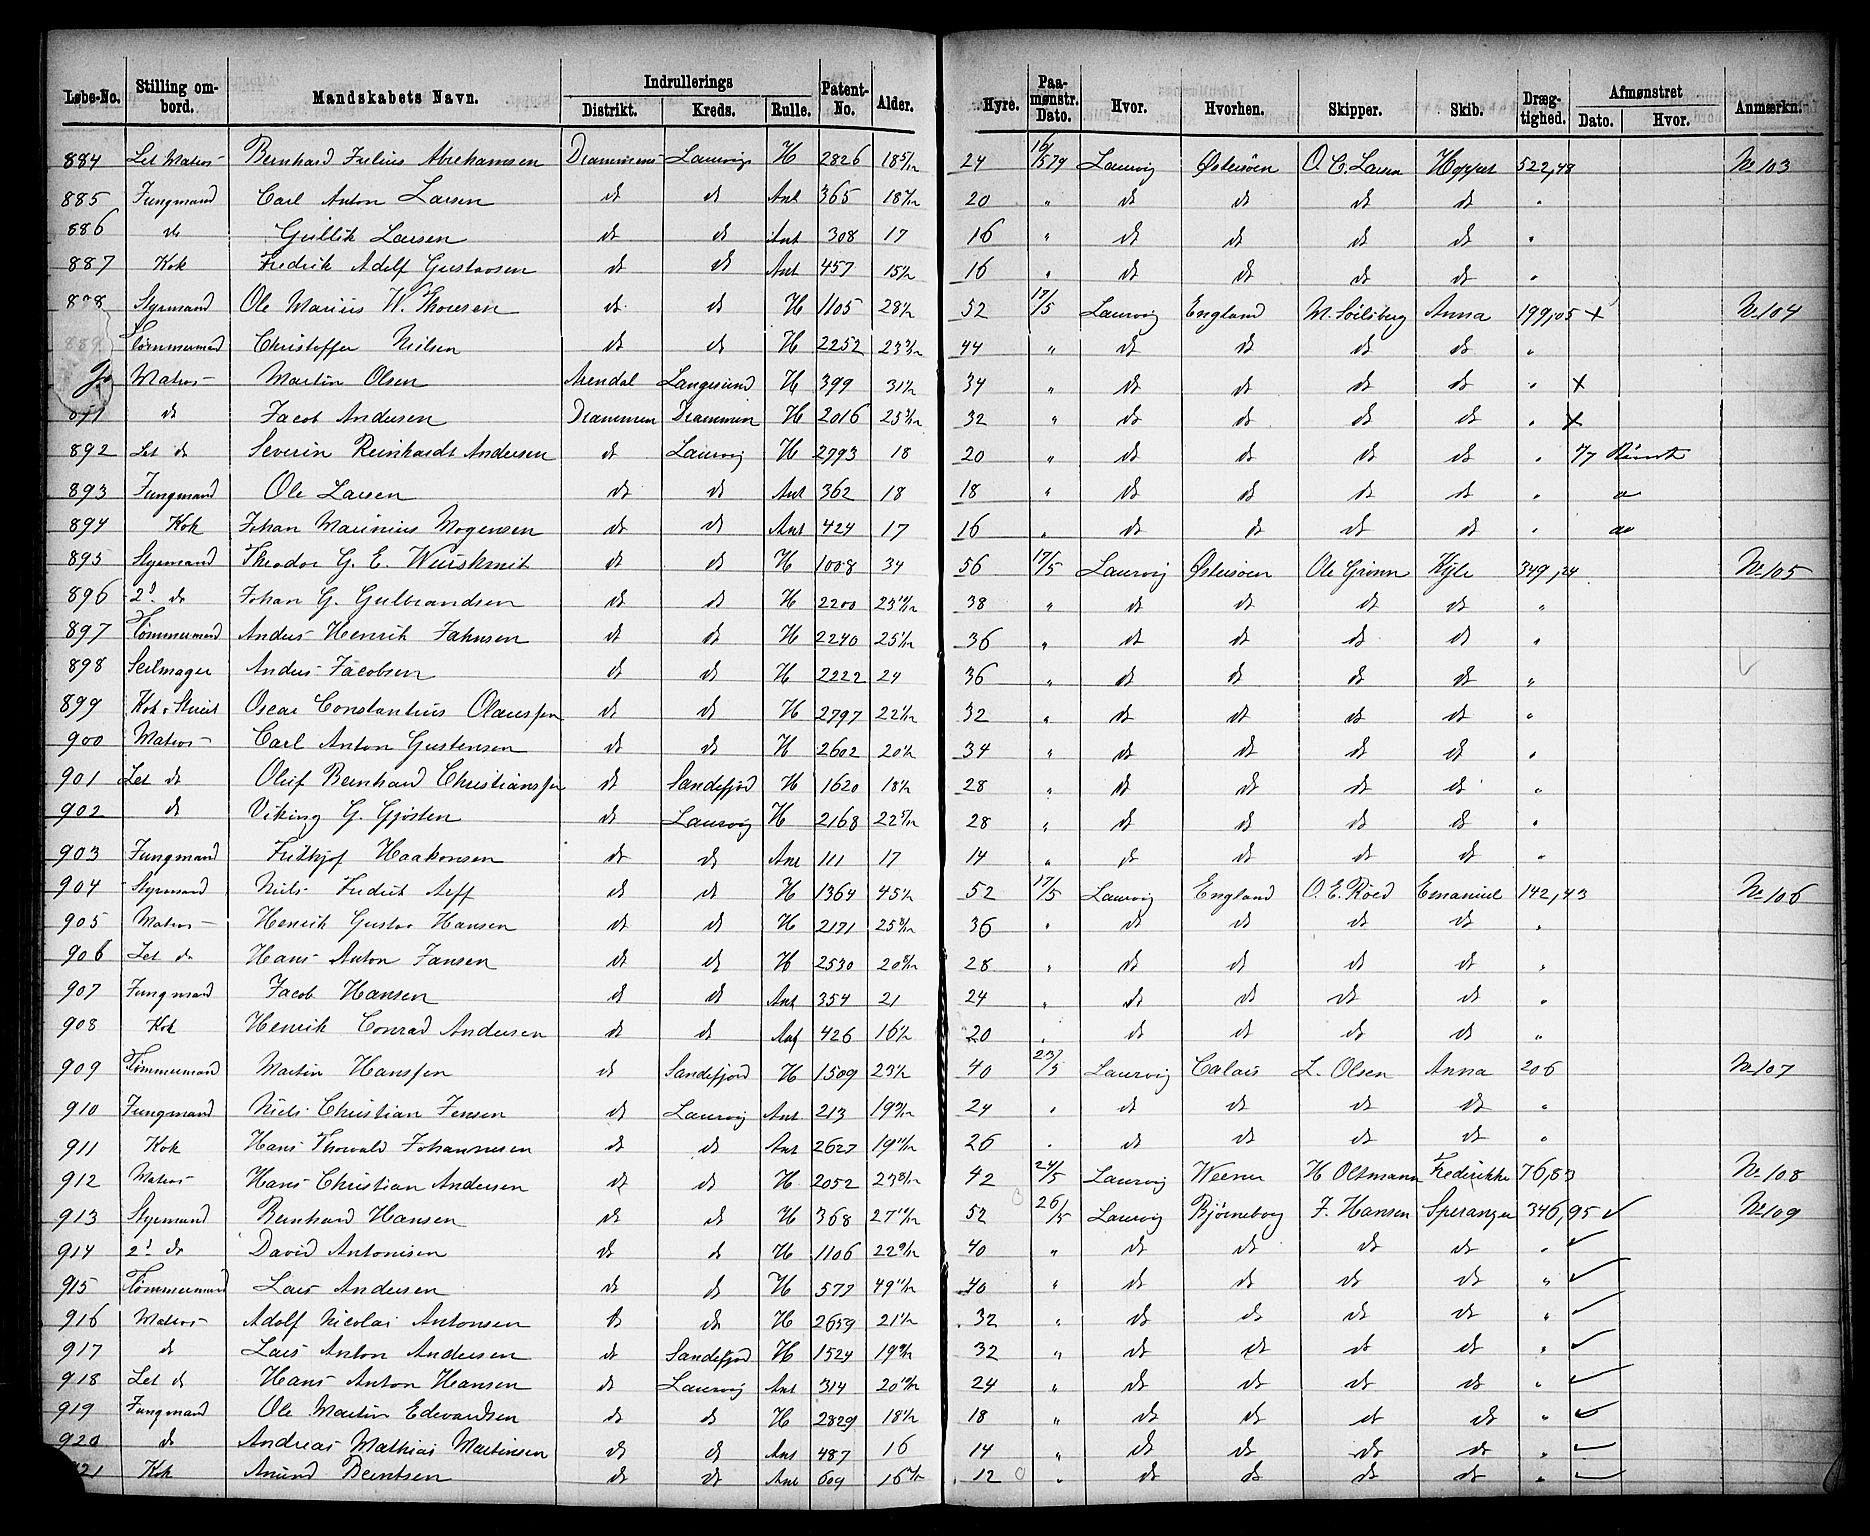 Løbe-No. | Stilling ombord. | Mandskabets Navn. | Indrullerings Distrikt. | Kreds. | Rulle. | Patent-No. | Alder. | Hyre. | Paamønstr. Dato. | Hvor. | Hvorhen. | Skipper. | Skib. | Drægtighed. | Afmønstret Dato. | Hvor. | Anmærkn.
884 Let Matros Bernhard Julius Abrahamsen Drammens Laurvigs H 2826 18 5/12 24 16/5 79 Laurvig Østersøen O. C. Larsen 522,48 No 103
885 Jungmand Carl Anton Larsen dt dt Ant 365 20 " dt dt dt dt "
886 do Gullik Larsen dt dt Ant 308 17 16 " dt dt dt dt "
887 Kok Fredrik Adolf Gustavsen dt dt Ant 457 15½ 16 " dt dt dt dt "
888 Styrmand Ole Marius W. Thoresen dt dt H 1105 52 17/5 Laurvig England M. Solsberg Anna 199,05 x No 104
889 Tømmermand Christoffer Nilsen dt dt H 2252 44 " dt dt dt dt "
Matros Martin Olsen Arendal Langesund H 399 31½ 34 " dt dt dt dt " x
891 dt Jacob Andersen Drammen Drammen H 2016 32 " dt dt dt dt " x
892 Let do Severin Reinhardt Andersen dt Laurvig H 2793 18 20 " dt dt dt dt "
893 Jungmand Ole Larsen dt dt Ant 362 18 18 " dt dt dt dt "
894 Kok Johan Marinius Mogensen dt dt Ant 424 17 16 " dt dt dt dt " do
895 Styrmand Theodor G. E. dt dt H 1008 34 56 17/5 Laurvig Østersøen Ole Grønn Kyle 349,24 No 105
896 2d do Johan G. Gulbrandsen dt dt H 2200 38 " dt dt dt dt "
897 Tømmermand Anders Henrik Jahnsen dt dt H 2240 36 " dt dt dt dt "
898 Seilmager Anders Jacobsen dt dt H 2222 24 36 " dt dt dt dt "
899 Kok & Stuert Oscar Constantius Olaussen dt dt H 2797 32 " dt dt dt dt "
900 Matros Carl Anton Gustensen dt dt H 2602 20½ 34 " dt dt dt dt "
901 Let dt Oluf Bernhard Christianssen dt Sandefjord H 1620 18½ 28 " dt dt dt dt "
902 dt Viking G. Gjøsten dt Laurvig H 2168 28 " dt dt dt dt "
903 Jungmand Fridthjof Haakonsen dt dt Ant 111 17 14 " dt dt dt dt "
904 Styrmand Niels Fredrik dt dt H 1364 45½ 52 17/5 Laurvig England O. E. Röed Emanuel 142,43 No 106
905 Matros Henrik Gustav Hansen dt dt H 2171 36 " dt dt dt dt "
906 Let do Hans Anton Jansen dt dt H 2530 28 " dt dt dt dt "
907 Jungmand Jacob Hansen dt dt Ant 354 21 24 " dt dt dt dt "
908 Kok Henrik Conrad Andersen dt dt Ant 426 16½ 20 " dt dt dt dt "
909 Tømmermand Martin Hanssen dt Sandefjord H 1509 23½ 40 23/5 Laurvig Calais L. Olsen Anna 206 No 107
910 Jungmand Niels Christian Jensen dt Laurvig Ant 213 24 " dt dt dt dt "
911 Kok Hans Thorvald Johannesen dt dt Ant 2627 26 " dt dt dt dt "
912 Matros Hans Christian Andersen dt dt H 2052 42 24/5 Laurvig Weener H Oltmann Fredrikke 76,83 No 108
913 Styrmand Bernhard Hansen dt dt H 368 52 26/5 Laurvig Bjørneborg J. Hansen Speranza 346,95 ✓ No 109
914 2d do David Antonisen dt dt H 1106 40 " dt dt dt dt " ✓
915 Tømmermand Lars Andersen dt dt H 577 40 " dt dt dt dt " ✓
916 Matros Adolf Nicolai Antonsen dt dt H 2659 21½ 32 " dt dt dt dt " ✓
917 dt Lars Anton Andersen dt Sandefjord H 1524 32 " dt dt dt dt " ✓
918 Let do Hans Anton Hansen dt Laurvig Ant 314 24 " dt dt dt dt " ✓
919 Jungmand Ole Martin Edvardsen dt dt H 2829 18½ 18 " dt dt dt dt " ✓
920 do Andreas Mathias Martinsen dt dt Ant 487 16 14 " dt dt dt dt " ✓
921 Kok Anund Berntsen dt dt Ant 609 12 " dt dt dt dt " ✓